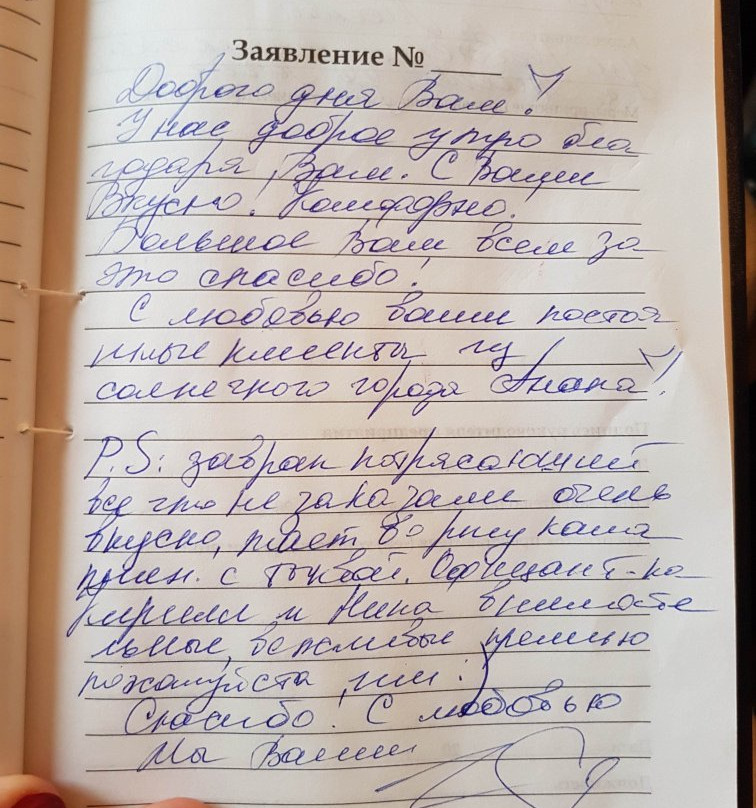 Заявление №
Доброго дня Вам!
У нас доброе утро бла
годаря Вам. С Вами
Вкусно! Комфортно.
Большое Вам всем за
это спасибо!
С любовью ваши постоя
нные клиенты из
солнечного города Анапа!
P.S: завтрак потрясающий
все что не заказали очень
вкусно, тает во рту каша
пшен. с тыквой. Официант-ка
Кирилл и Нина внимате
льные, вежливые премию
пожалуйста им :)
Спасибо! С любовью
Мы Ваши